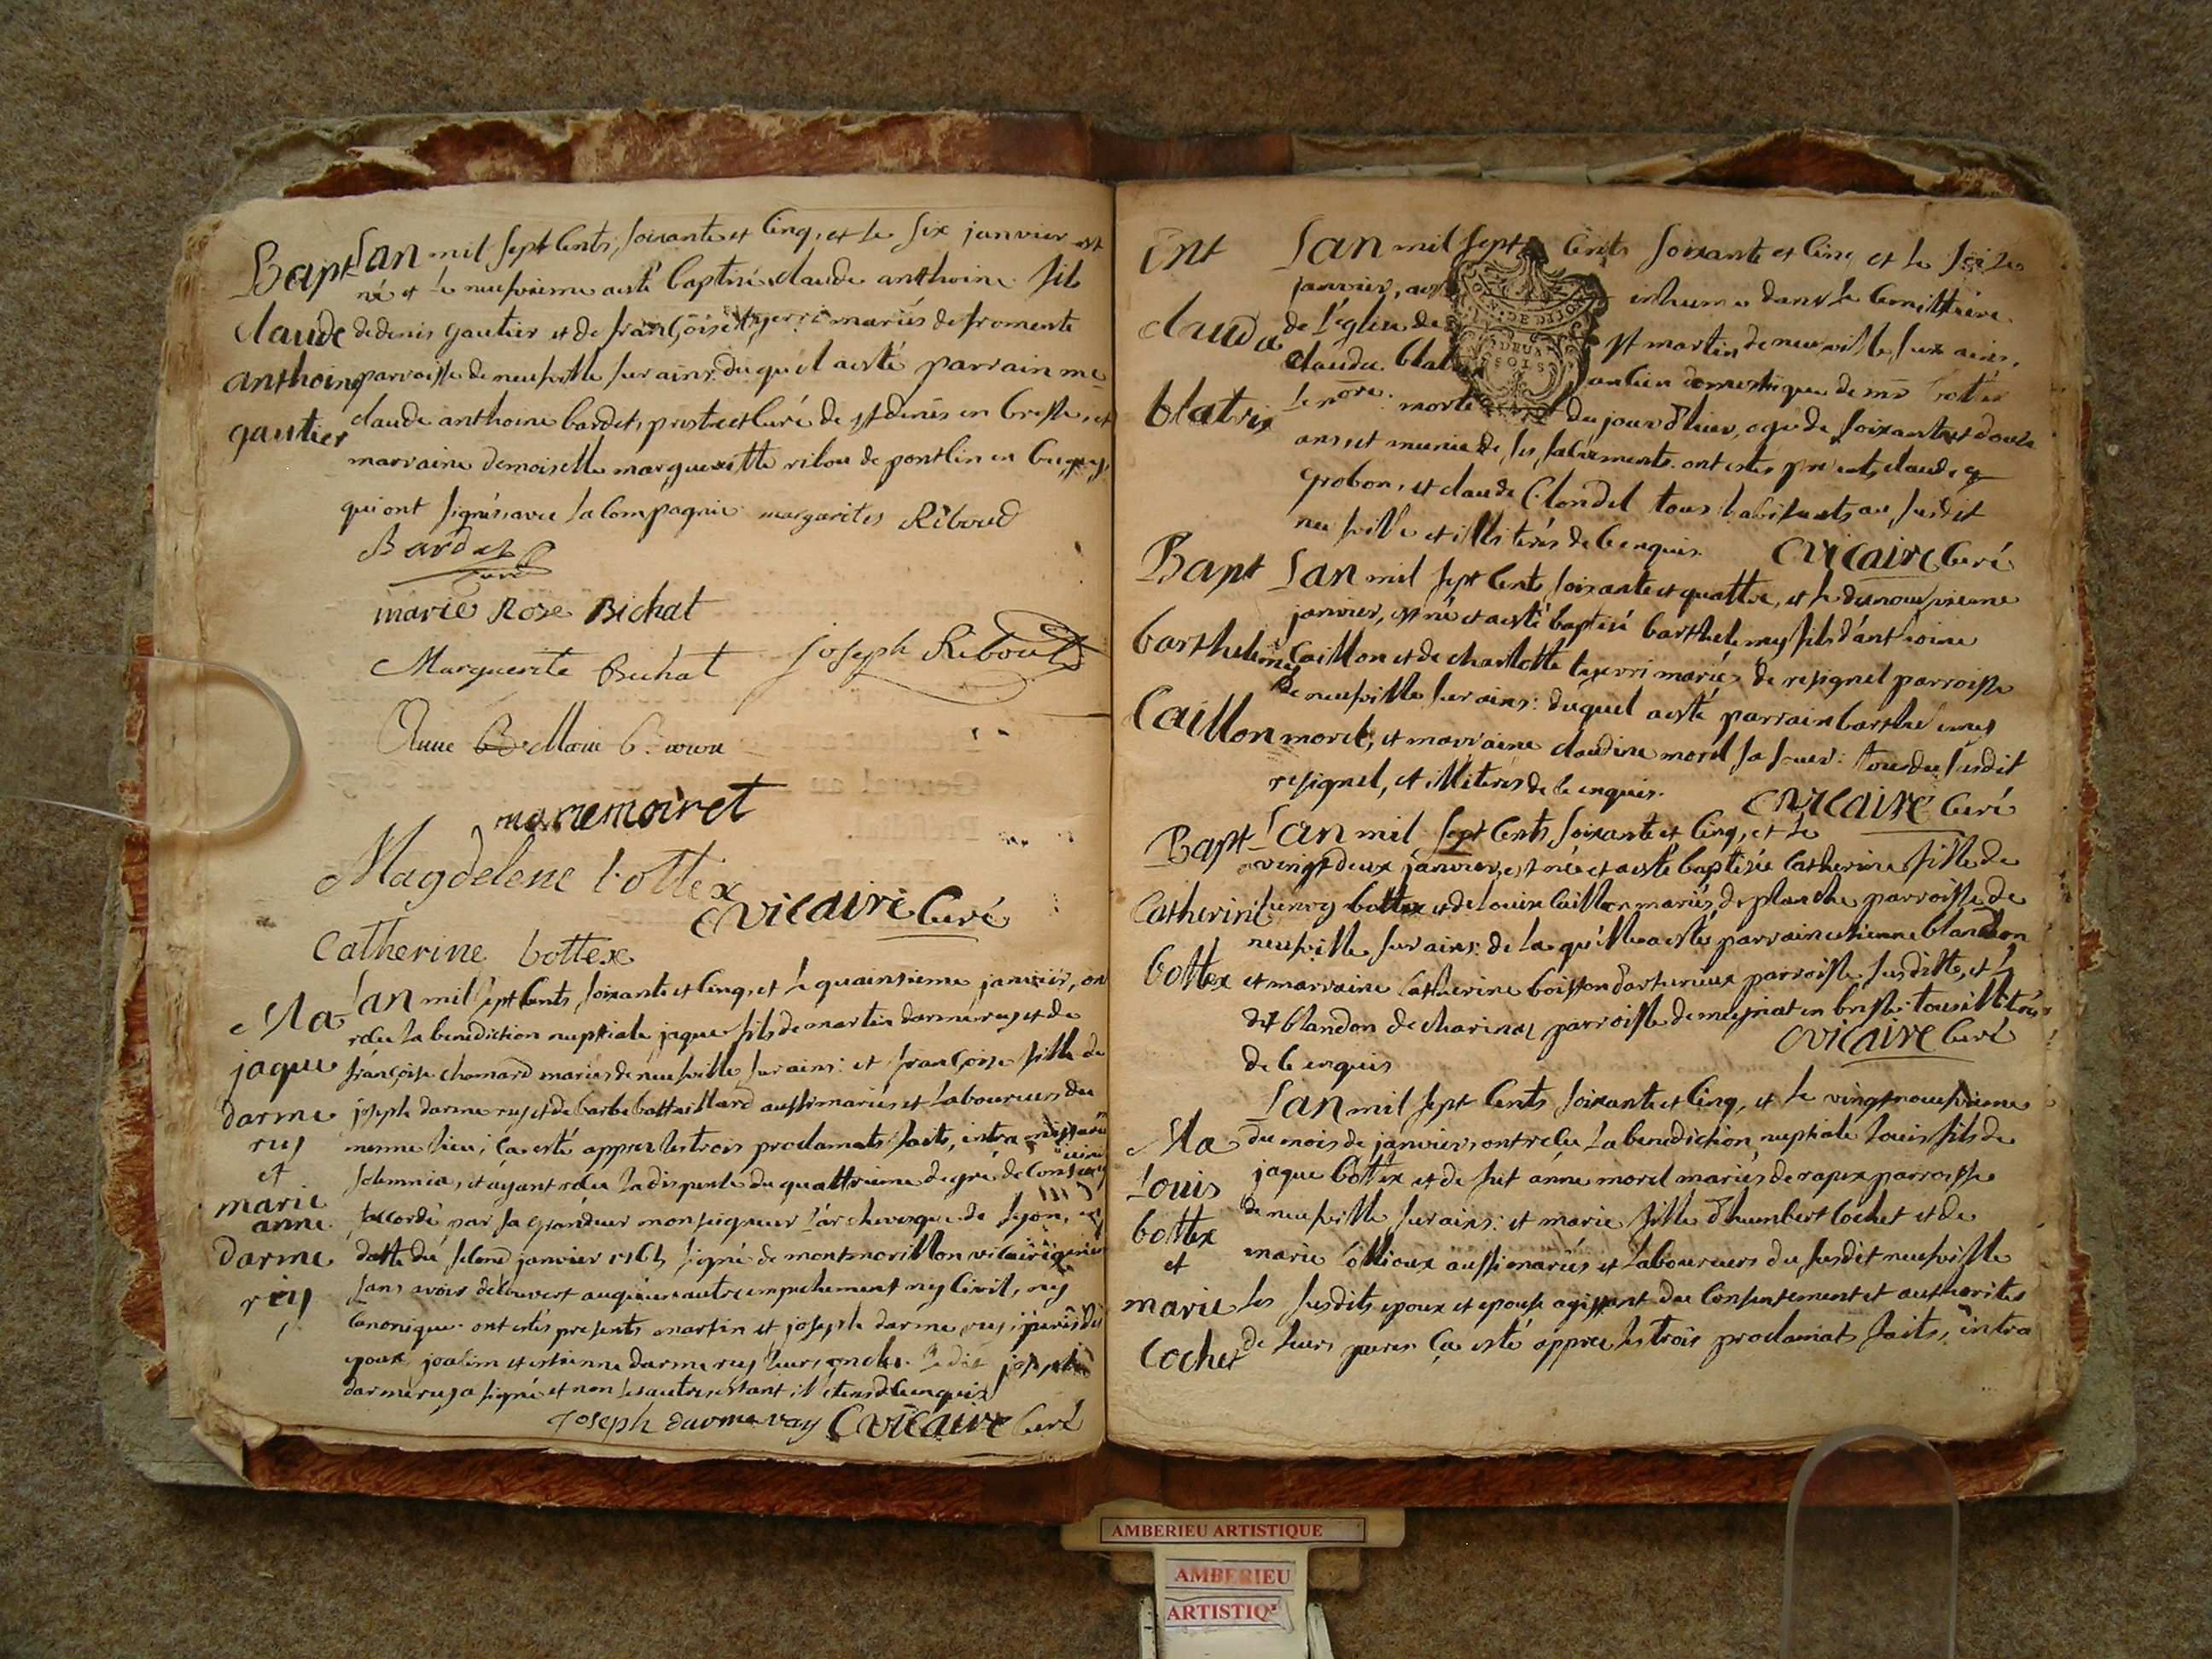 Bapt
claude
anthoine
gautier
Lan mil sept cents, soixante et cinq, et le six janvier est
né et le neufvieme a esté baptisé claude anthoine fils
de denis gautier et de françoise mariés de fromente
parroisse de neufville sur ains: du quel a esté parrain me
claude anthoine bardet, prestre et curé de st denis en bresse, et
marraine demoiselle margueritte ribou de pontlin en bugey,
qui ont signés avec la compagnie margarites Riboud
Bardet
curé
marie Rose Bichat
Marguerite Buhat Joseph Riboud
Anne
marie moiret
Magdelene bottex
Cvicaire Curé
Catherine bottex
Ma
jaque
darme
rey
et
marie
anne
darme
rey
Lan mil sept cents soixante et cinq, et le quainsieme janvier, on
reçu la benediction nuptiale jaque fils de martin darmerey et de
françoise chamard mariés de neufville sur ains: et françoise fille de
joseph darmerey et de barbe battaillard aussi mariés et laboureurs du
mesme lieu; ça esté appres les trois proclamats faits, intra
solemnia, et ayant reçu la dispense du quattrieme degré de
accordé par sa grandeur monseigneur l'archevesque de lyon, en
datte du second janvier 1765 signé de montmorillon
sans avoir decouvert auqueun autre empechement ny civil, ny
canonique. ont estés presents martin et joseph darmerey, peres des
epoux, joachim et estienne darmerey leurs oncles. le dit joseph
darmerey a signé et non les autres estant illiterés de ce enquis
Joseph darmeray Cvicaire Curé
Ent
claude
blatrix
Lan mil sept cents soixante et cinq et le seize
janvier, a esté inhumé dans le cemittiere
de l'église de st martin de neufville sur ains,
claude ancien domestique de mr
morte du jour d'hier, agé de soixante et douze
ans et munie de ses sacrements. ont estés presents claude
grobon, et claude blondel tous habitants au susdit
neufville et illiterés de ce enquis. Cvicaire Curé
Bapt
barthelemy
Caillon
Lan mil sept cents soixante et quattre, et le dixneufvieme
janvier, est né et a esté baptisé barthelemy fils d'anthoine
Caillon et de charlotte mariés de resignel parroisse
de neufville sur ains: duquel a esté parrain barthelemy
morel, et marraine claudine morel sa soeur: tous du susdit
resignel, et illiterés de ce enquis. Cvicaire Curé
Bapt
Catherine
bottex
Lan mil sept cents soixante et cinq, et le
vingt deux janvier, est née et a esté baptisée Catherine fille de
bottex et de louise Caillon mariés de planche parroisse de
neufville sur ains: de la quelle a esté parrain estienne blandon
et marraine Catherine boisson d'arturieux parroisse susditte, et le
dit blandon de charinal parroisse de meyriat en bresse: tous illiterés
de ce enquis Cvicaire Curé
Ma
Louis
bottex
et
marie
Cochet
Lan mil sept cents soixante et cinq, et le vingtneufvieme
du mois de janvier ont reçu la benediction nuptiale louis fils de
jaque bottex et de fut anne morel mariés de rapex parroisse
de neufville sur ains: et marie fille d'humbert Cochet et de
marie aussi mariés et laboureurs du susdit neufville
les susdits epoux et epouse agissant du consentement et authorités
de leurs peres ça esté appres les trois proclamats faits, intra
AMBERIEU ARTISTIQUE
AMBERIEU
ARTISTIQ